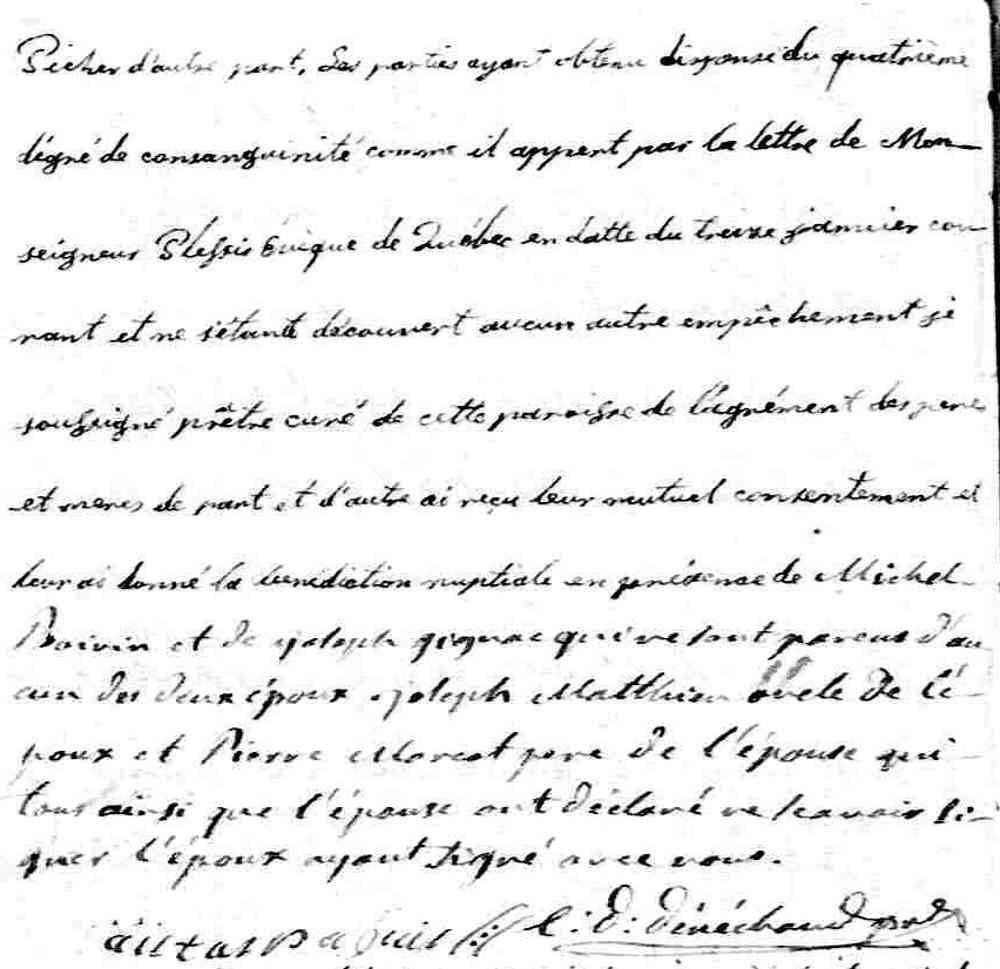 Picher d'autre part, Les parties ayant obtenu dispense du quatrième
dégré de consanguinité comme il appert par la lettre de Mon-
seigneur Plessis Evêque de Québec en datte du treize janvier cou-
rant et ne s'étant découvert aucun autre empêchement je
soussigné prêtre curé de cette paroisse de l'agrément des peres
et meres de part et d'autre ai reçu leur mutuel consentement et
leur ai donné la benediction nuptiale en présence de Michel
Boivin et de joseph gignac qui ne sont parens d'au-
cun des deux époux, joseph Matthieu oncle de l'é-
poux et Pierre Marcot pere de l'épouse qui
tous ainsi que l'épouse ont déclaré ne scavoir si-
gner l'époux ayant signé avec nous.
C: D: Dénéchaud ptre